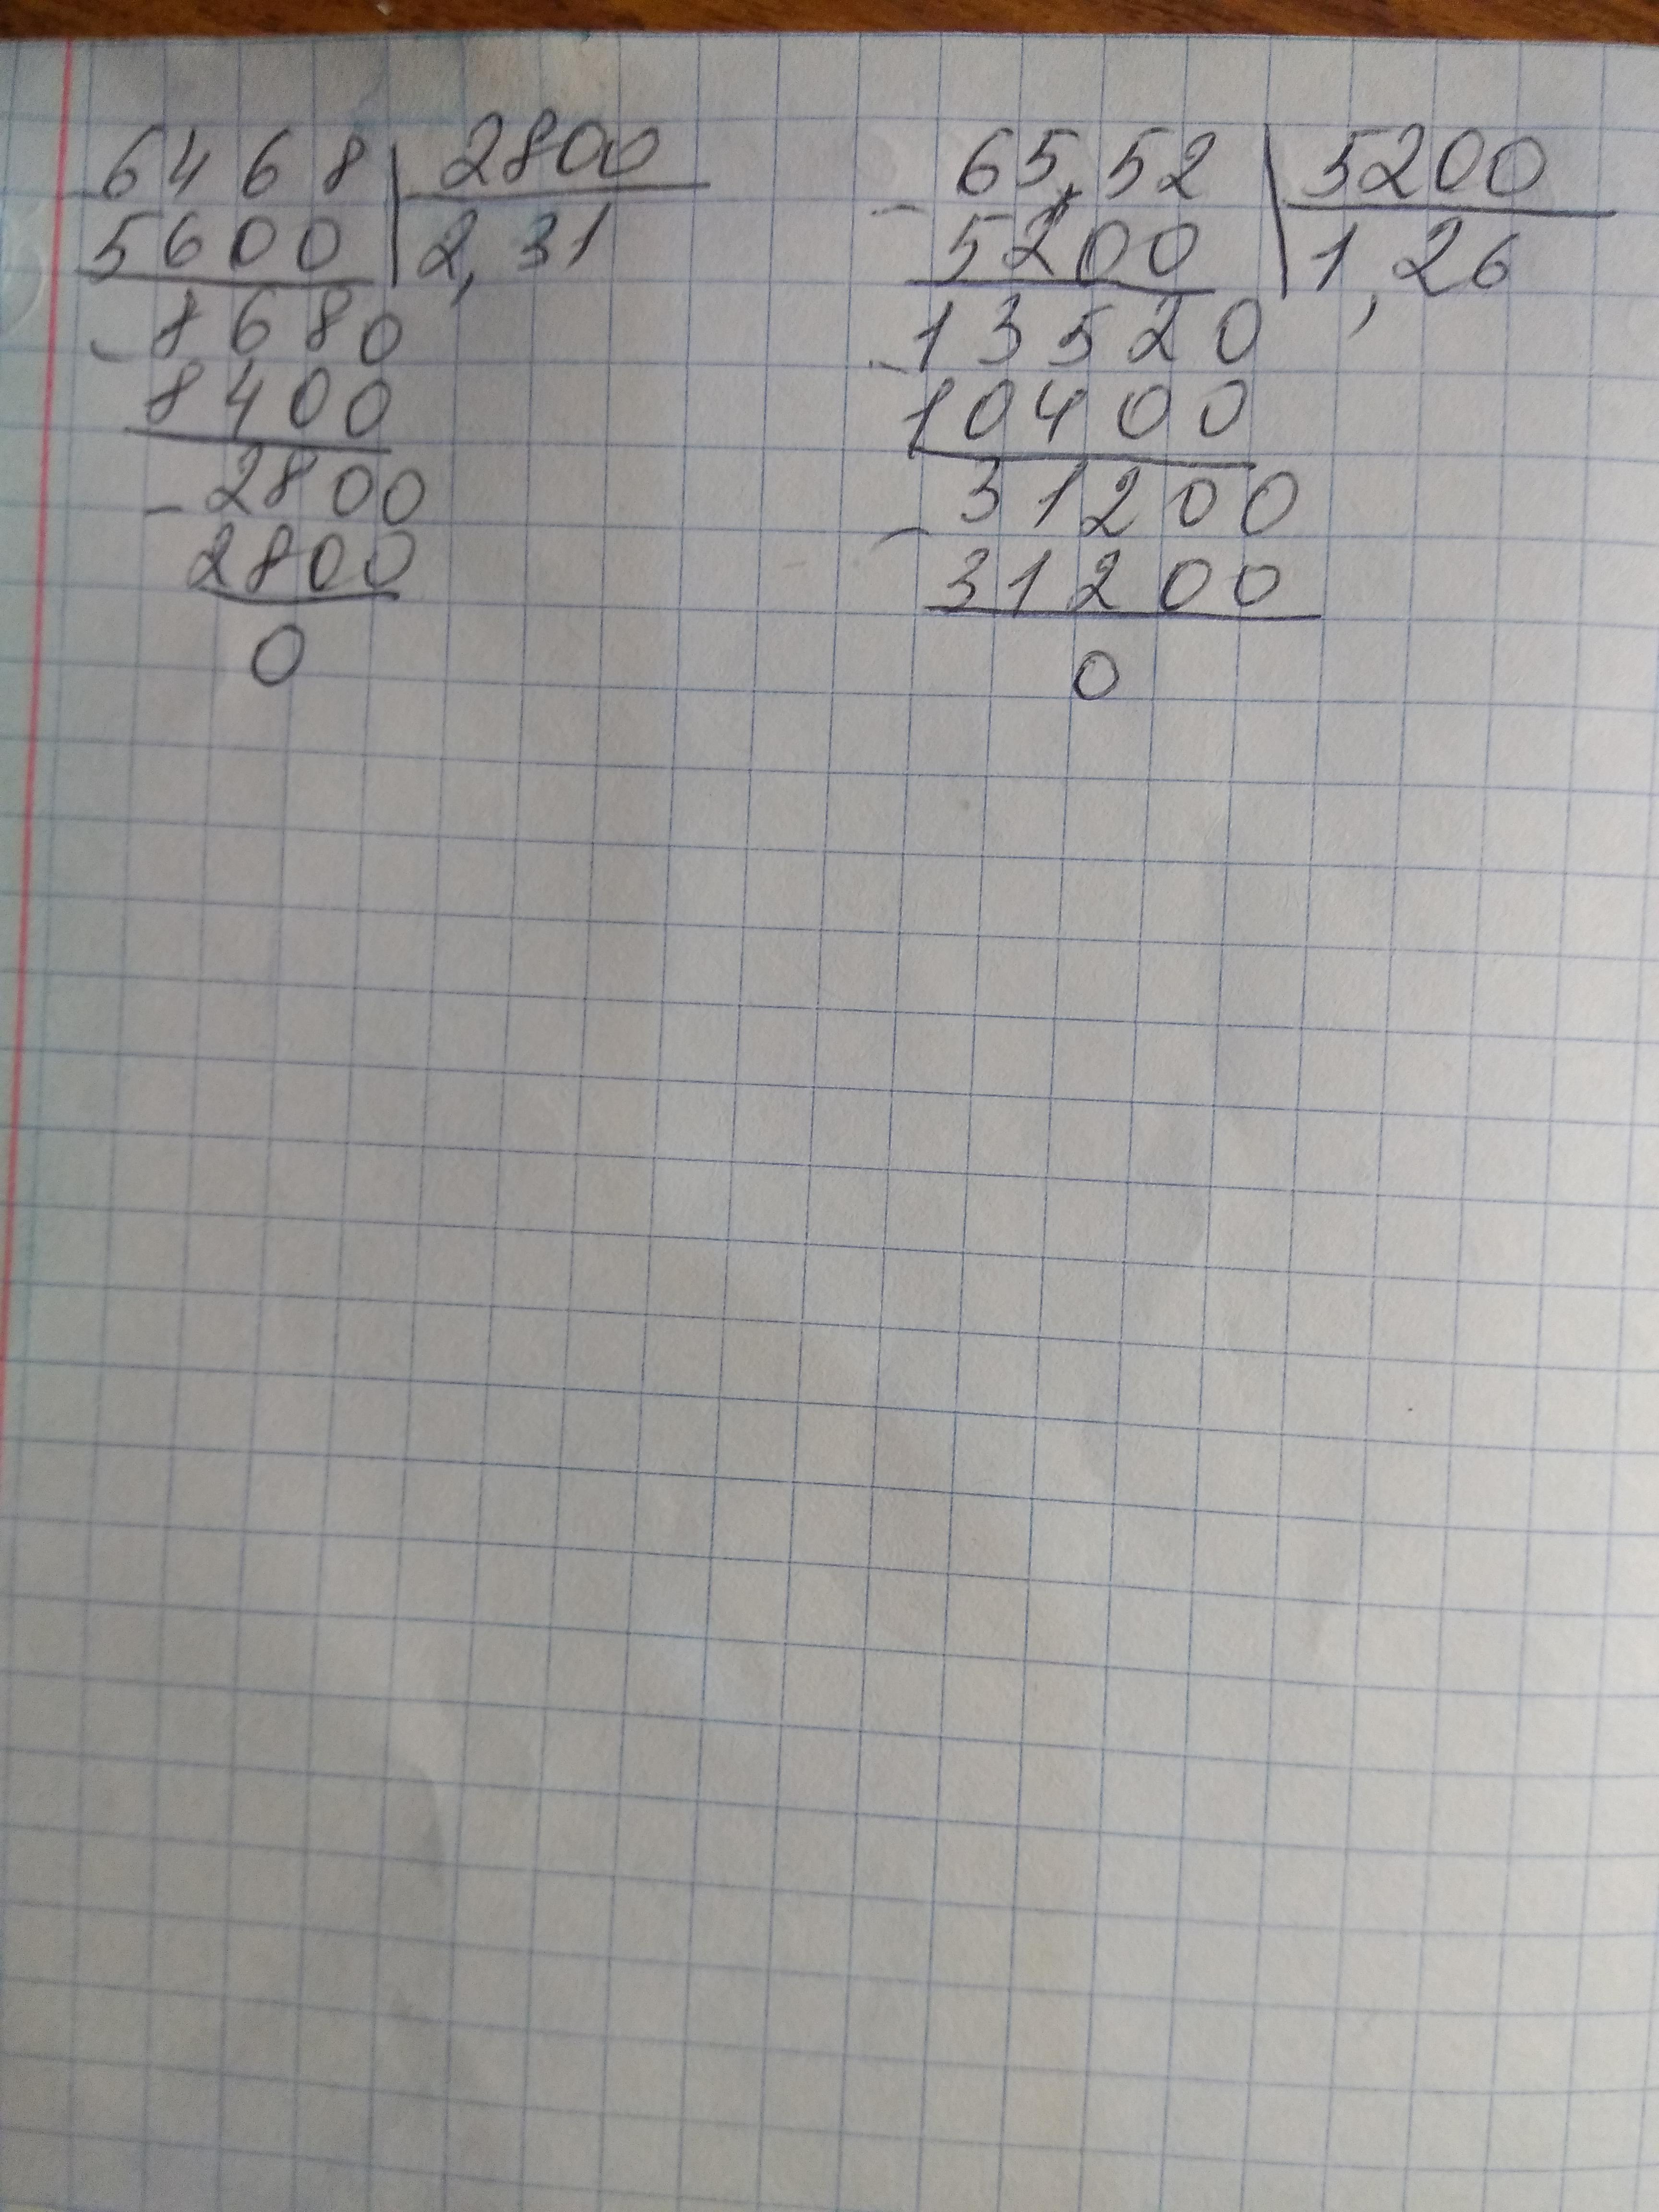 6468 | 2800
5600 | 2,31
- 8680
8400
- 2800
2800
0
- 65,52 | 5200
5200 | 1,26
- 13520
10400
- 31200
31200
0